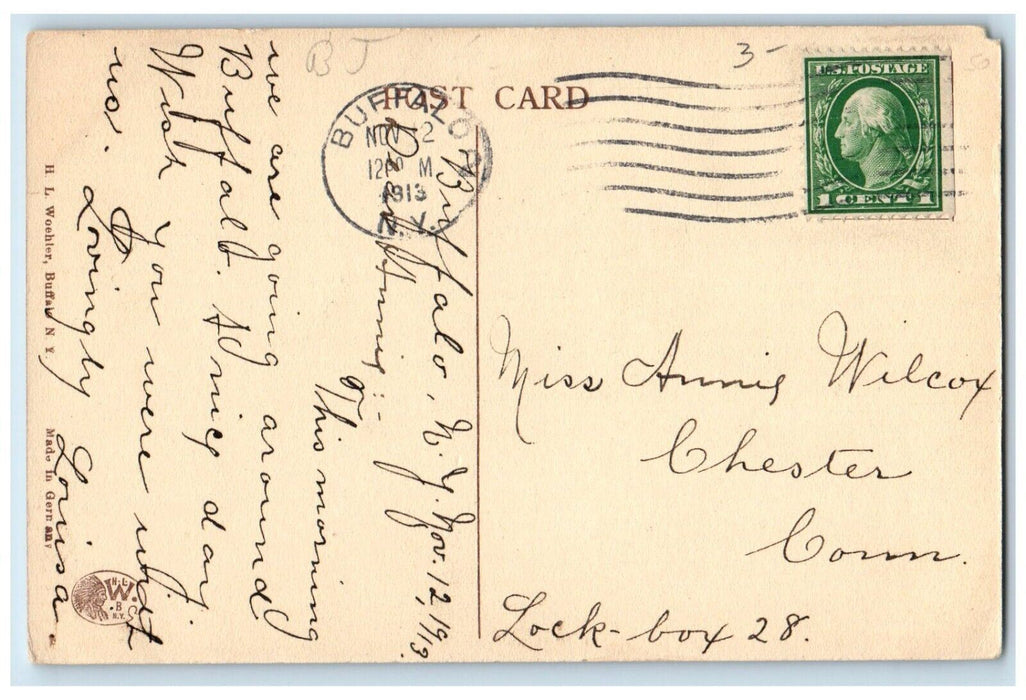 BJ
3-
50
POST CARD
BUFFALO
NOV 12
12 M
1913
N.Y.
U.S. POSTAGE
1 CENT 1
Buffalo, N.Y. Nov. 12, 1913.
Dear Annie :-
This morning
we are going around
Buffalo. A nice day
Wish you were with
us.
Lovingly Louisa.
Miss Annie Wilcox
Chester
Conn.
Lock-box 28.
H. L. Woehler, Buffalo N Y
Made in Germany
H.L.
W.
B
N.Y.